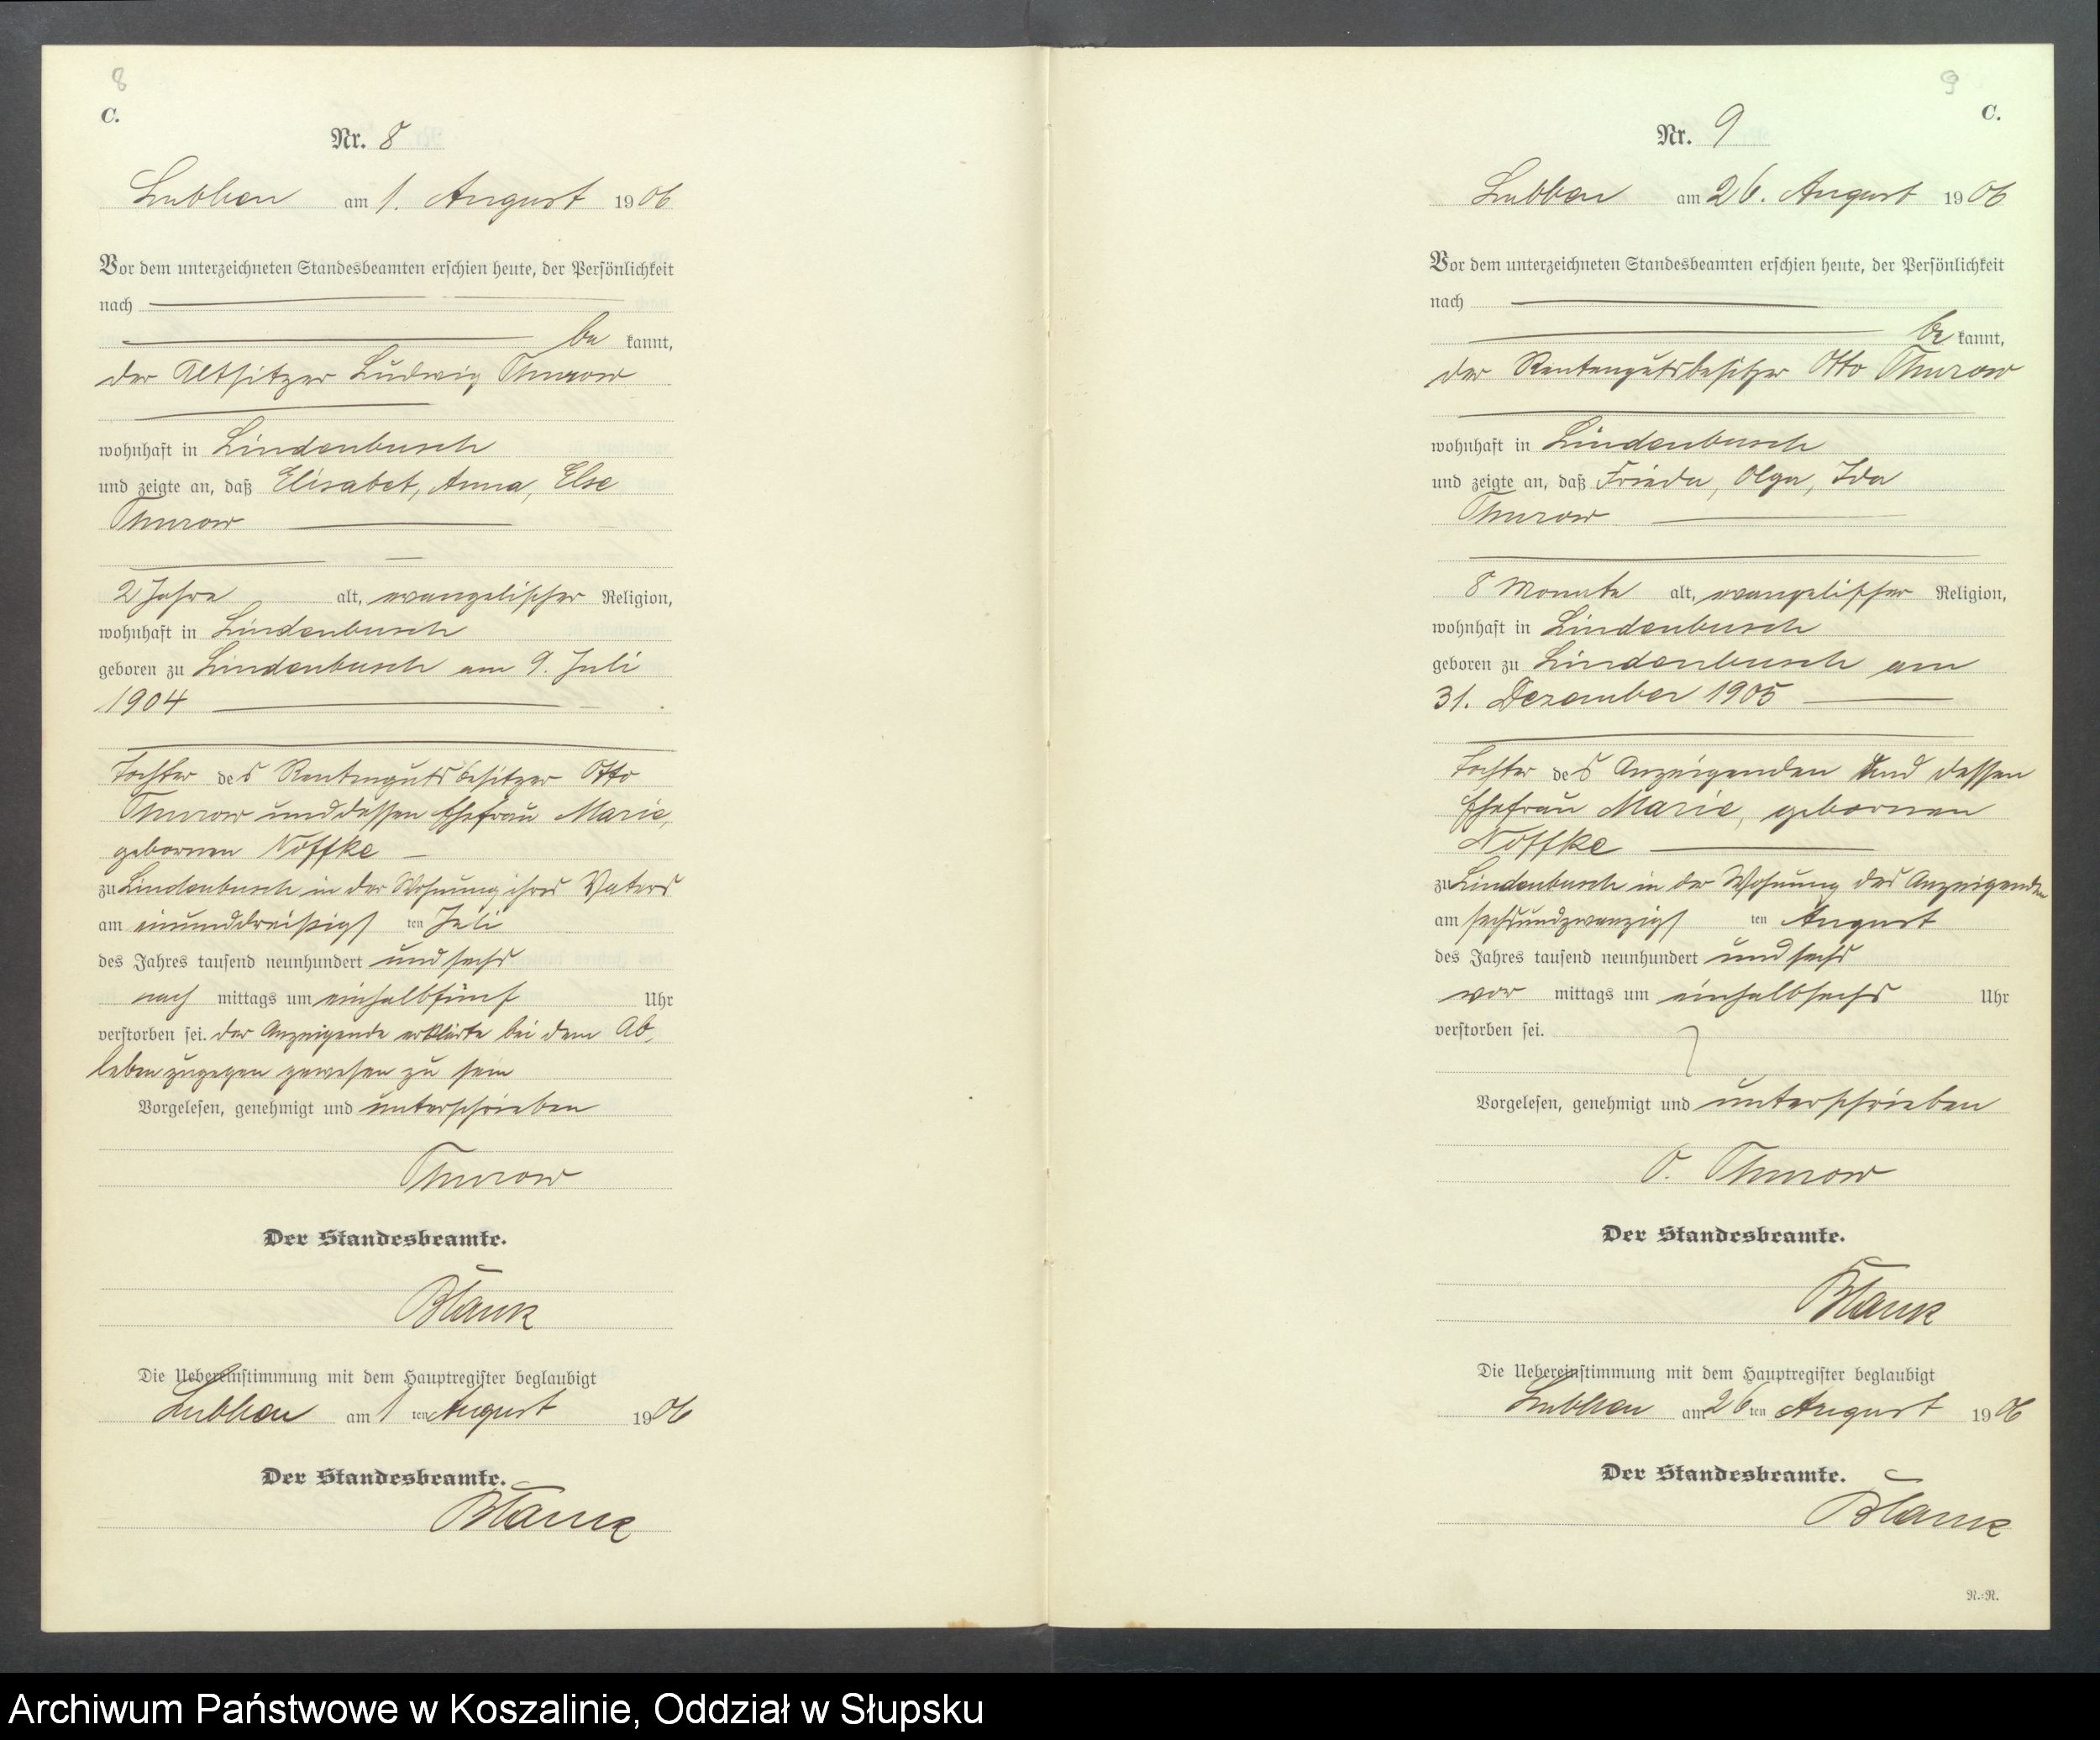 8
C.
Nr. 8
Lubben am 1. August 1906
Vor dem unterzeichneten Standesbeamten erschien heute, der Persönlichkeit
nach
be kannt,
der Altsitzer Ludwig Thurow
wohnhaft in Lindenbusch
und zeigte an, daß Elisabet, Anna, Else
Thurow
2 Jahre alt, evangelischer Religion,
wohnhaft in Lindenbusch
geboren zu Lindenbusch am 9. Juli
1904
Tochter des Rentengutsbesitzer Otto
Thurow und dessen Ehefrau Marie,
gebornen Noffke
zu Lindenbusch in der Wohnung ihres Vaters
am einunddreißigsten Juli
des Jahres tausend neunhundert und sechs
nach mittags um einhalbfünf Uhr
verstorben sei. Der Anzeigende erklärte bei dem Ab-
leben zugegen gewesen zu sein
Vorgelesen, genehmigt und unterschrieben
Thurow
Der Standesbeamte.
Blank
Die Uebereinstimmung mit dem Hauptregister beglaubigt
Lubben am 1 ten August 1906
Der Standesbeamte.
Blank
9
C.
Nr. 9
Lubben am 26. August 1906
Vor dem unterzeichneten Standesbeamten erschien heute, der Persönlichkeit
nach
be kannt,
der Rentengutsbesitzer Otto Thurow
wohnhaft in Lindenbusch
und zeigte an, daß Frieda, Olga, Ida
Thurow
8 Monate alt, evangelischer Religion,
wohnhaft in Lindenbusch
geboren zu Lindenbusch am
31. Dezember 1905
Tochter des Anzeigenden und dessen
Ehefrau Marie, gebornen
Noffke
zu Lindenbusch in der Wohnung des Anzeigenden
am sechsundzwanzigsten August
des Jahres tausend neunhundert und sechs
vor mittags um einhalbsechs Uhr
verstorben sei.
Vorgelesen, genehmigt und unterschrieben
O. Thurow
Der Standesbeamte.
Blank
Die Uebereinstimmung mit dem Hauptregister beglaubigt
Lubben am 26 ten August 1906
Der Standesbeamte.
Blank
N.-R.
Archiwum Państwowe w Koszalinie, Oddział w Słupsku